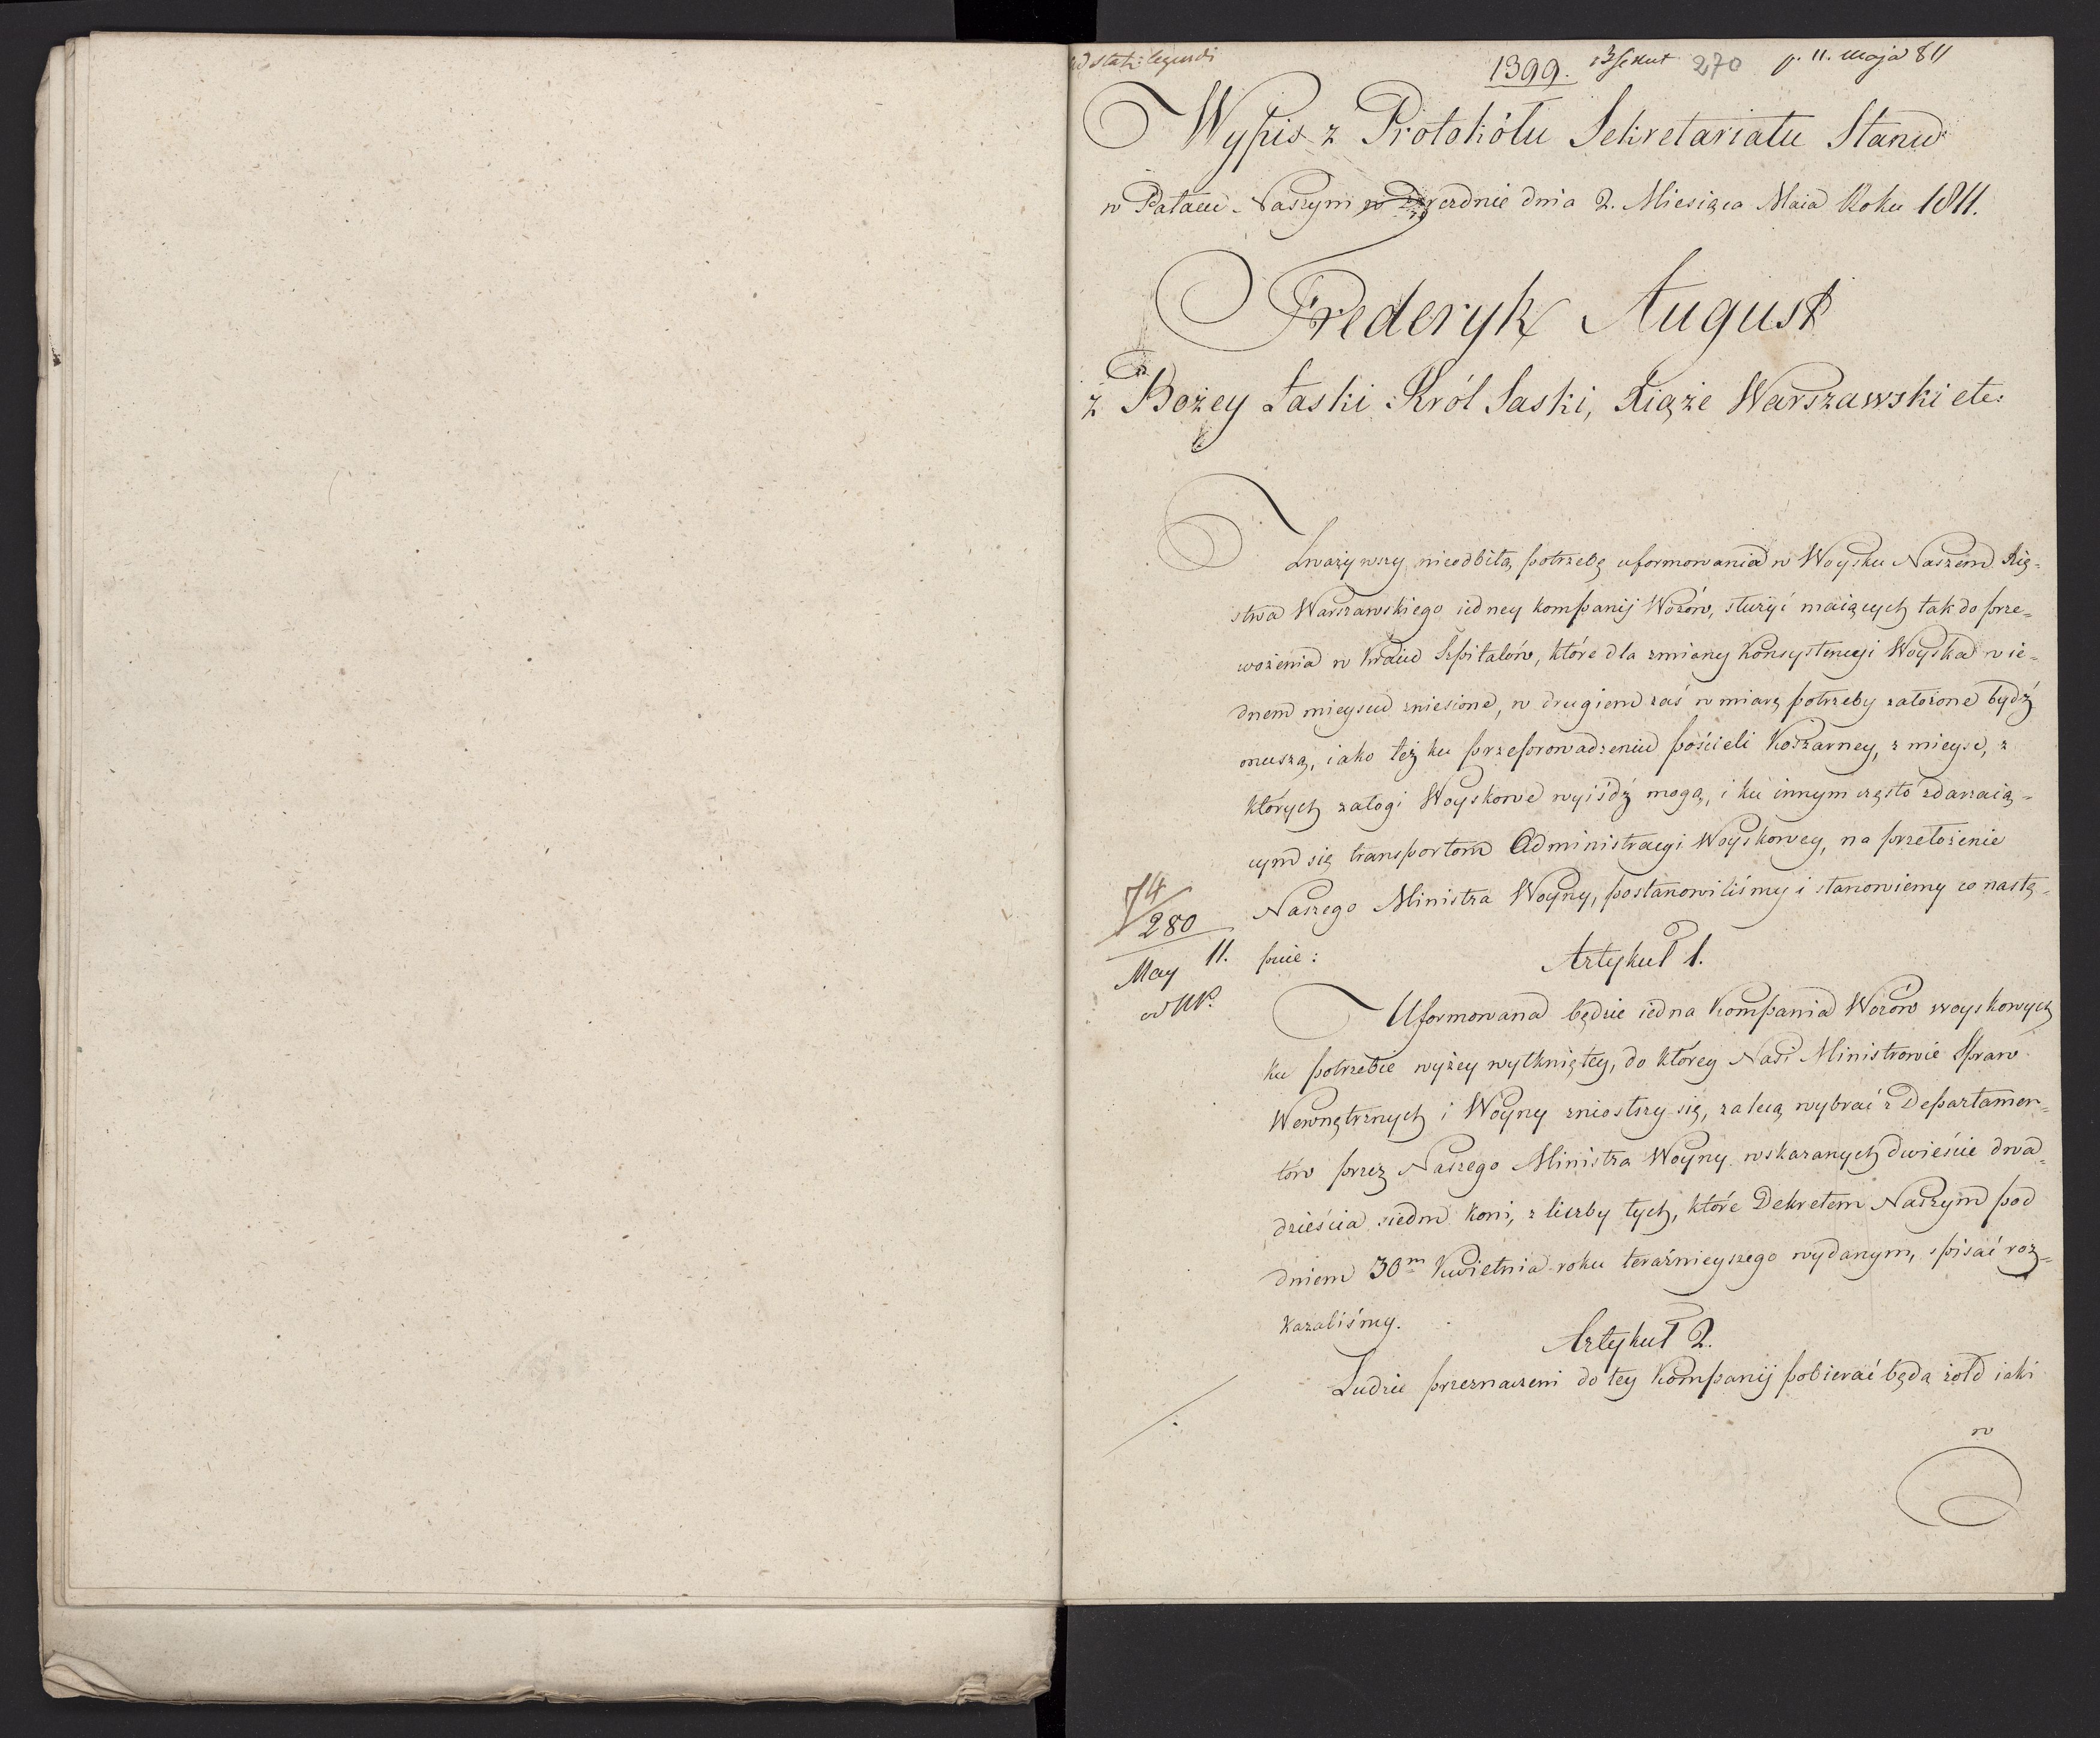 ad statu legendi
1399. 270 p. 11. maja 811
Wypis z Protokółu Sekretariatu Stanu
w Pałacu Naszym w dnia 2. Miesiąca Maia Roku 1811.
Frederyk August
z Bożey Łaski Król Saski, Xiąże Warszawski etc:
Zważywszy nieodbitą potrzebę uformowania w Woysku Naszem Xię-
stwa Warszawskiego iedney kompanij Wozów, służyć maiących tak do prze-
wożenia w kraiu Szpitalów, które dla zmiany Konsystencyi Woyska w ie-
dnem mieyscu zniesione, w drugiem zaś w miarę potrzeby założone bydź
muszą, iako też ku przeprowadzeniu pościeli Koszarney, z mieysc, z
których załogi Woyskowe wyiśdź mogą, i ku innym często zdarzaią-
cym się transportom Administracyi Woyskowey, na przełożenie
Naszego Ministra Woyny, postanowiliśmy i stanowiemy co nastę-
puie:
74
280
May 11.
Artykuł 1.
Uformowana będzie iedna Kompania Wozów woyskowych
ku potrzebie wyżey wytkniętey, do którey Nasi Ministrowie Spraw
Wewnętrznych i Woyny zniosłszy się, zalecą wybrać z Departamen-
tów przez Naszego Ministra Woyny wskazanych dwieście dwa-
dzieścia siedm koni, z liczby tych, które Dekretem Naszym pod
dniem 30m Kwietnia roku teraźnieyszego wydanym, spisać roz-
kazaliśmy.
Artykuł 2.
Ludzie przeznaczeni do tey Kompanij pobierać będą żołd iaki
w